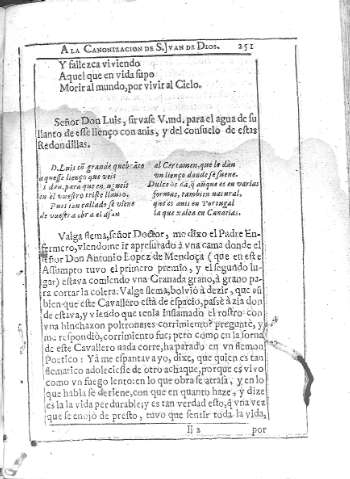 A LA CANONIZACION DE S. JVAN DE DIOS. 251
Y fallezca viviendo
Aquel que en vida supo
Morir al mundo, por vivir al Cielo.
Señor Don Luis, sirvase V.md. para el agua de su
llanto de esse lienço con anis, y del consuelo de estas
Redondillas.
D. Luis con grande quebrāto
aquesse lienço que veis
os den, para que enxugueis
en el vuestro triste llanto.
Pues tan callado se viene
de vuestra obra el
al Certamen, que le dèn
un lienço donde se suene.
Dulce os dà, q̄ aunque es en varias
formas, tambien natural,
que es anis en Portugal
la que xalea en Canarias.
Valga flema, señor Doctor, me dixo el Padre En-
fermero, viendome ir apresurado à vna cama donde el
señor Don Antonio Lopez de Mendoça (que en este
Assumpto tuvo el primero premio, y el segundo lu-
gar) estava comiendo vna Granada grano, à grano pa-
ra cortar la colera. Valga flema, bolviò à dezir, que si
bien que este Cavallero està de espacio, passè àzia don
de estava, y viendo que tenia inflamado el rostro con
vna hinchazon pokrenases corrimiento? preguntè, y
me respondiò, corrimiento fue; pero como en la forma
de este Cavallero nada corre, ha parado en vn flemon
Poetico: Yà me espantava yo, dixe, que quien es tan
flematico adoleciesse de otro achaque, porque es vivo
como vn fuego lento: en lo que obra se atrasa, y en lo
que habla se detiene, con que en quanto haze, y dize
es la la vida perdurable; y es tan verdad esto, q̄ vna vez
que se enojò de presto, tuvo que sentir toda la vida,
Ii 2 por